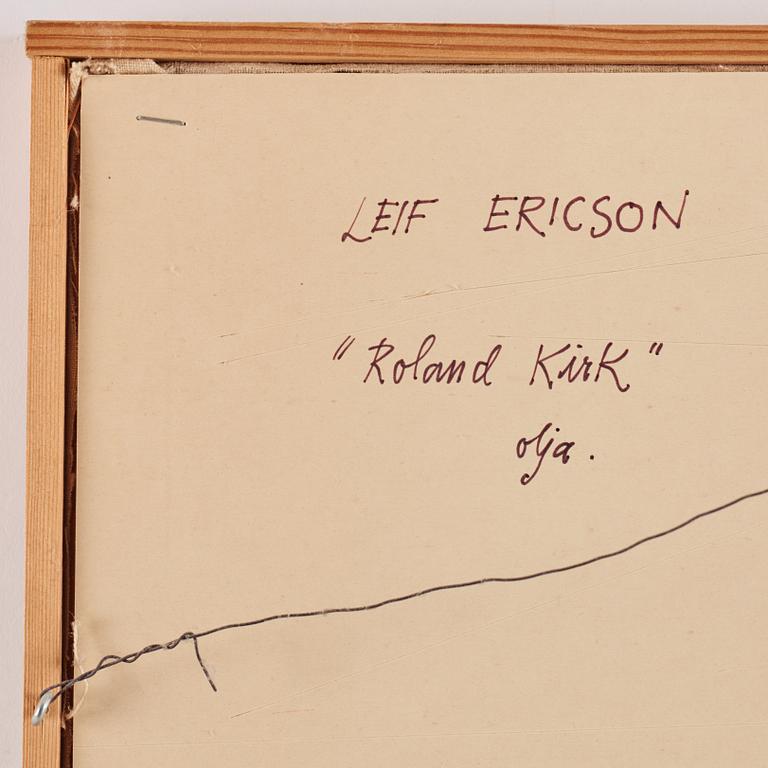 LEIF ERICSON
"Roland Kirk"
olja.